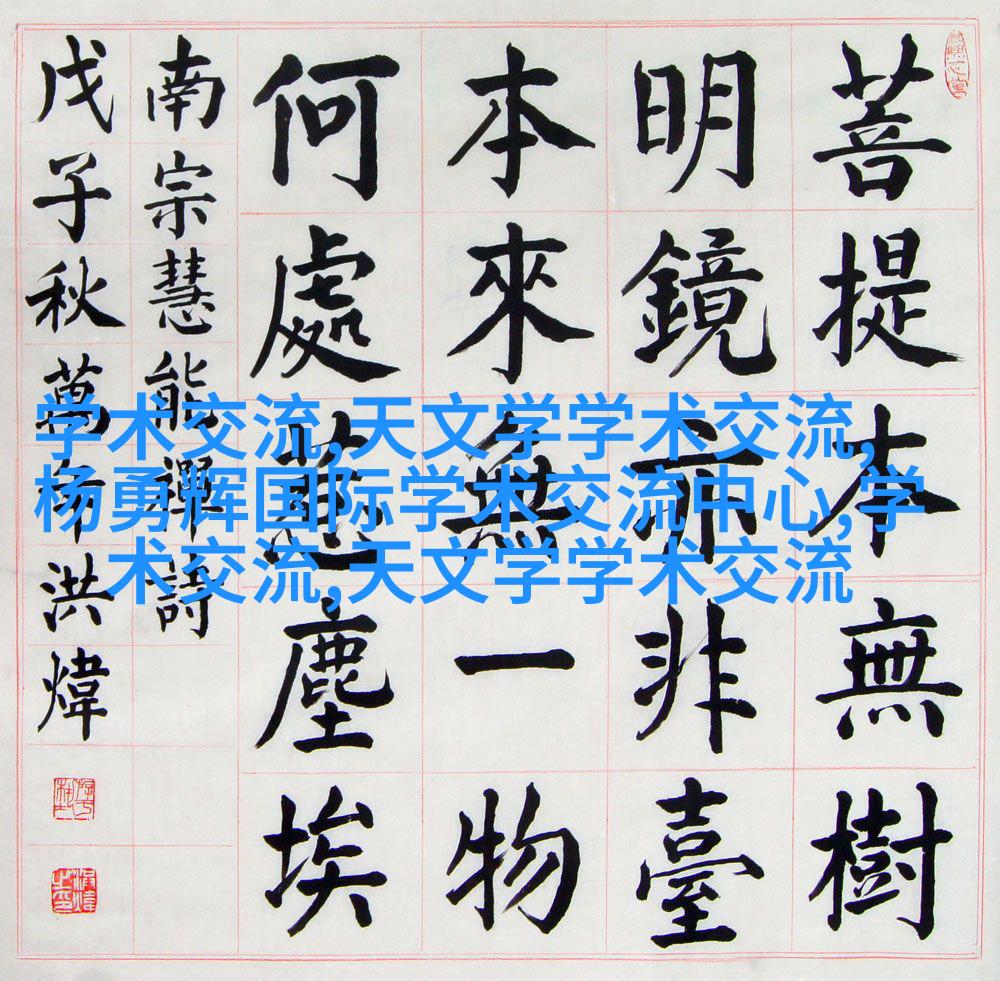 菩提本無樹
明鏡亦非臺
本來無一物
何處惹塵埃
南宗慧能禪詩
戊子秋萬洪煒
学术交流,天文学学术交流,
杨勇辉国际学术交流中心,学
术交流,天文学学术交流